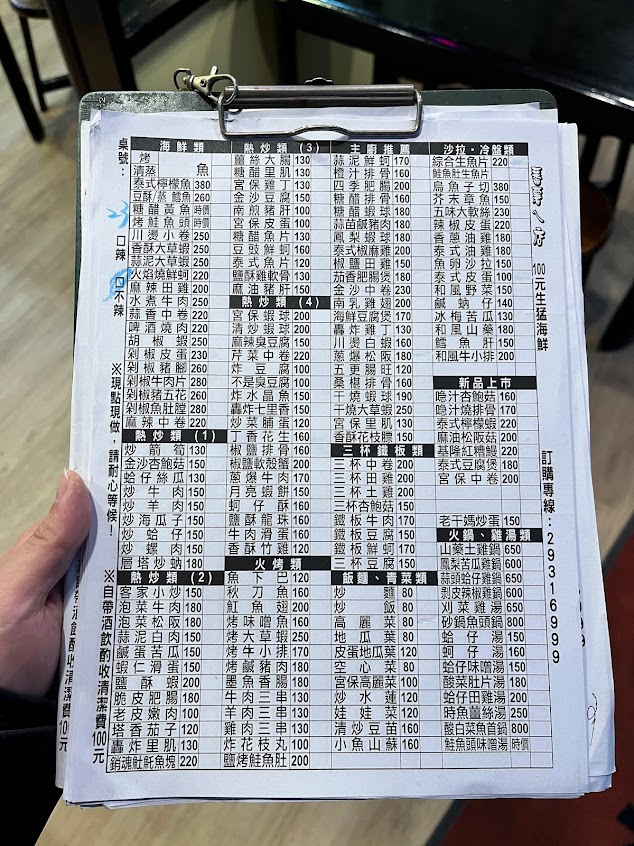 桌號：
口辣 口不辣
※現點現做，請耐心等候！
※自帶酒飲酌收清潔費100元
海鮮類
烤 魚
清蒸
泰式檸檬魚 380
豆酥/蒸鱈魚 260
糖醋黃魚 時價
烤鮭魚頭 時價
川燙小卷 250
香酥大草蝦 250
蒜泥大草蝦 250
火焰燒鮮蚵 220
麻辣田雞 200
水煮牛肉 250
蒜香中卷 220
啤酒燒肉 220
胡椒蝦 250
剁椒皮蛋 230
剁椒豬腳 240
剁椒牛肉片 260
剁椒豬五花 260
剁椒魚肚膛 280
麻辣中卷 220
熱炒類（1）
炒箭筍 130
金沙杏鮑菇 150
蛤仔絲瓜 130
炒牛肉 150
炒羊肉 150
炒海瓜子 150
炒蛤仔 150
炒螺肉 150
層塔炒蚋 180
熱炒類（2）
客家小炒 150
泡菜牛肉 180
泡菜松阪 180
蒜泥白肉 150
鹹蛋苦瓜 150
蝦仁滑蛋 150
鹽酥蝦 200
脆皮肥腸 180
老皮嫩肉 100
塔香茄子 120
轟炸里肌 130
銷魂魟魠魚塊 220
熱炒類（3）
薑絲大腸 130
糖醋里肌 130
宮保雞丁 130
金沙豆腐 150
南煎豬肝 100
宮保皮蛋 100
糖醋魚片 130
豆豉鮮蚵 160
泰式魚片 120
鹽酥雞軟骨 130
麻油豬肝 150
熱炒類（4）
宮保蝦球 200
清炒蝦球 200
麻辣臭豆腐 150
芹菜中卷 220
炸豆腐 100
不是臭豆腐 100
炸水晶魚 150
轟炸七里香 150
炒菜脯蛋 120
丁香花生 160
椒鹽排骨 160
椒鹽軟殼蟹 200
蔥爆牛肉 170
月亮蝦餅 150
蚵仔酥 160
鹽酥龍珠 160
牛肉滑蛋 160
香酥竹雞 120
火烤類
魚下巴 120
秋刀魚 160
魟魚翅 200
烤味噌魚 160
烤大草蝦 250
烤牛小排 170
烤鹹豬肉 180
墨魚香腸 180
牛肉三串 130
羊肉三串 130
雞肉三串 130
炸花枝丸 100
鹽烤鮭魚肚 200
主廚推薦
蒜泥鮮蚵 170
橙汁排骨 160
四季肥腸 200
糖醋排骨 160
糖醋蝦球 180
蒜苗鹹豬肉 180
鳳梨蝦球 180
泰式椒麻雞 200
椒鹽田雞 150
茄香肥腸煲 180
金沙中卷 230
南乳雞翅 200
海鮮豆腐煲 170
轟炸雞丁 130
川燙白蝦 160
蔥爆松阪 180
五更腸旺 120
桑椹排骨 160
干燒蝦球 190
干燒大草蝦 250
宮保里肌 130
香酥花枝膘 150
三杯鐵板類
三杯中卷 200
三杯田雞 200
三杯土雞 200
三杯杏鮑菇 150
鐵板牛肉 170
鐵板豆腐 150
鐵板鮮蚵 170
三杯豆腐 150
飯麵、青菜類
炒麵 80
炒飯 80
高麗菜 80
地瓜葉 80
皮蛋地瓜葉 120
空心菜 80
宮保高麗菜 100
炒水蓮 120
娃娃菜 120
清炒豆苗 160
小魚山蘇 160
沙拉・冷盤類
綜合生魚片 220
鮭魚肚生魚片
烏魚子切 380
芥末章魚 150
五味大軟絲 230
辣椒皮蛋 220
香蔥油雞 180
泰式油雞 180
魚卵沙拉 150
泰式皮蛋 100
和風野菜 150
鹹蚋仔 140
冰梅苦瓜 130
和風山藥 180
鱈魚肝 150
和風牛小排 200
新品上市
梅汁杏鮑菇 160
梅汁燒排骨 170
泰式檸檬蝦 220
麻油松阪菇 200
基隆紅糟鰻 220
泰式豆腐煲 180
宮保中卷 200
老干媽炒蛋 150
火鍋、雞湯類
山藥土雞鍋 650
鳳梨苦瓜雞鍋 650
蒜頭蛤仔雞鍋 650
剝皮辣椒雞鍋 650
刈菜雞湯 650
砂鍋魚頭鍋 800
蛤仔湯 150
蚵仔湯 160
蛤仔味噌湯 150
酸菜肚片湯 180
蛤仔田雞湯 200
時魚薑絲湯 250
酸白菜魚首鍋 800
鮭魚頭味噌湯 時價
100元生猛海鮮
訂購專線：29316999